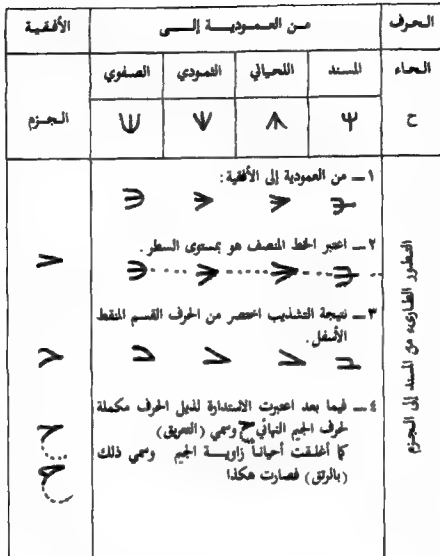 الحرف من العمودية إلى الأفقية
الحاء المسند اللحياني الثمودي الصفوي
ح الجزم
التطور الطارىء من المسند إلى الجزم
١ ـ من العمودية إلى الأفقية :
٢ ـ اعتبر الخط المنصف هو بمستوى السطر .
٣ ـ نتيجة التشذيب اختصر من الحرف القسم المنقط
الأسفل .
٤ ـ فيما بعد اعتبرت الاستدارة لذيل الحرف مكملة
لحرف الجيم النهائي ح وسمي (التعريق)
كما أغلقت أحياناً زاوية الجيم وسمي ذلك
(بالرتق) فصارت هكذا